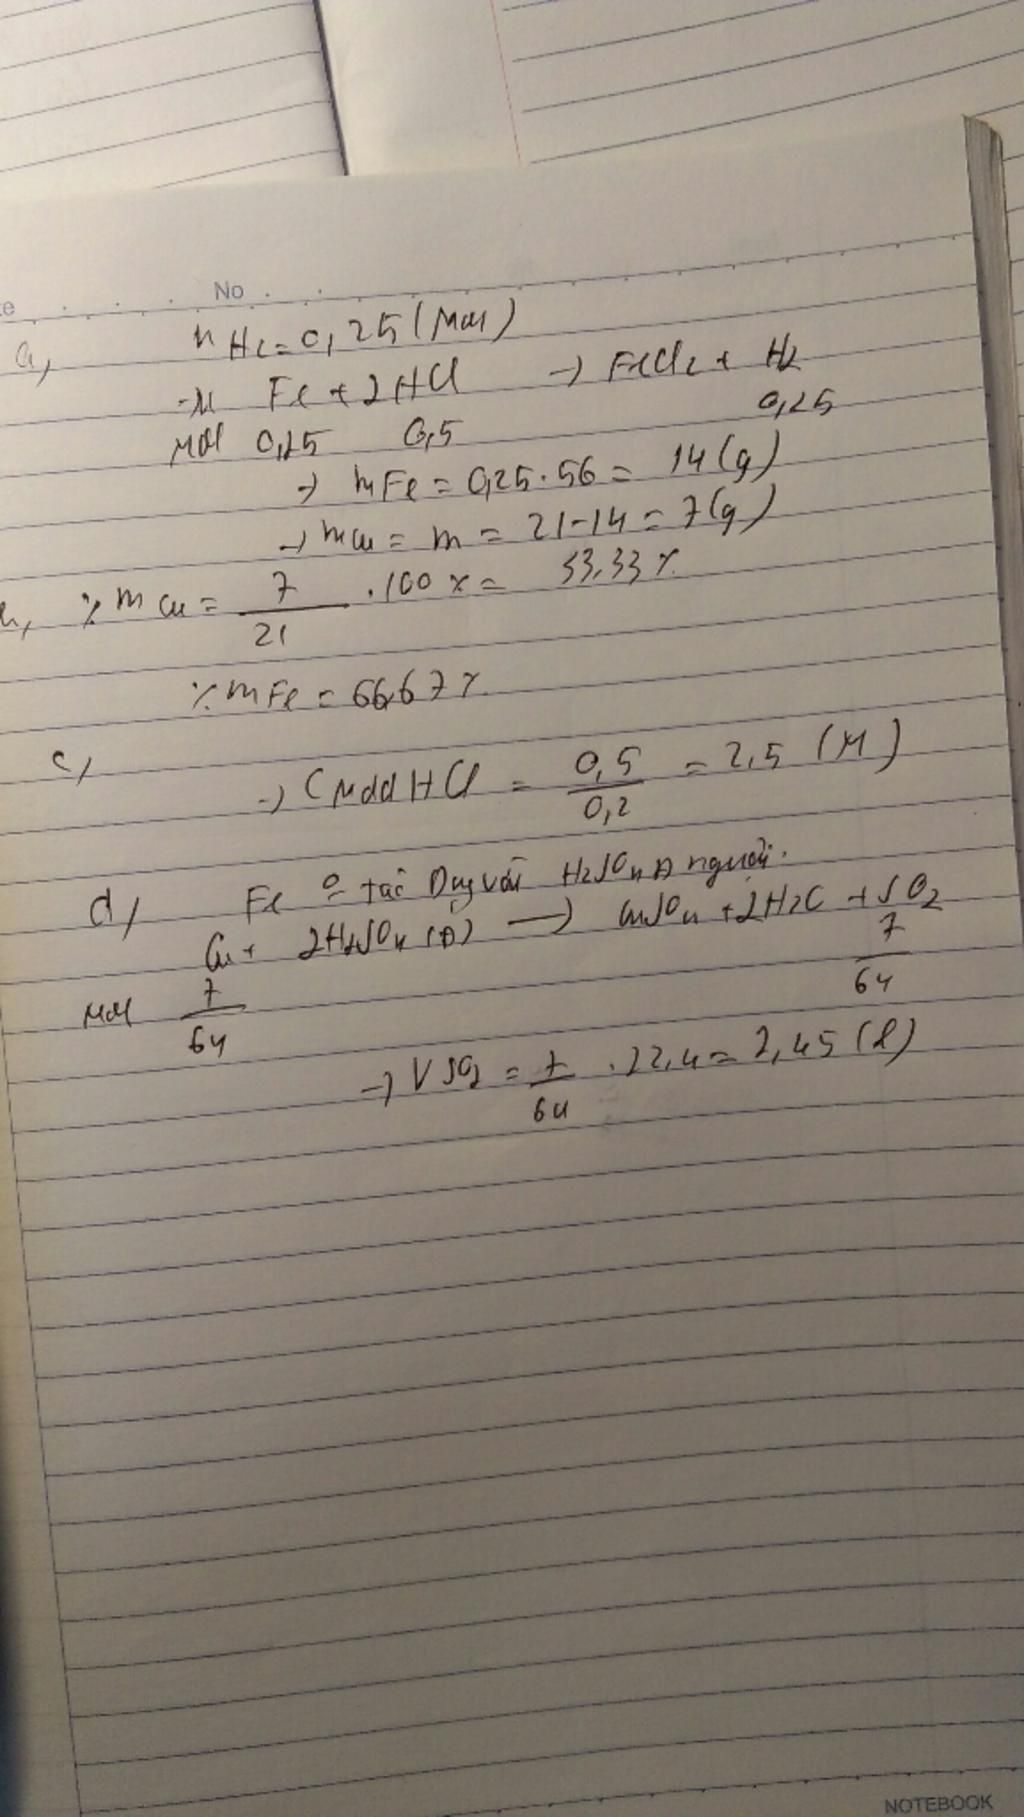 No
a, nH2=0,25(mol)
Fe + 2HCl → FeCl2 + H2
mol 0,25 0,5 0,25
→ mFe = 0,25.56 = 14(g)
→ mCu = m = 21-14 = 7(g)
%mCu = 7/21 .100% = 33,33%
%mFe = 66,67%
c, → CMddHCl = 0,5/0,2 = 2,5 (M)
d, Fe o tác Dụng với H2SO4 Đ nguội.
Cu + 2H2SO4(Đ) → CuSO4 + 2H2O + SO2
mol 7/64 7/64
→ VSO2 = 7/64 .22,4 = 2,45 (l)
NOTEBOOK